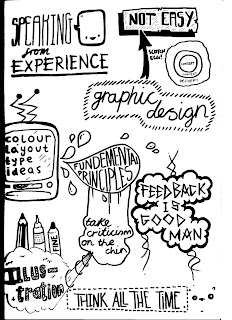 SPEAKING
from
EXPERIENCE
NOT EASY
SCOTCH
EGG!
comfort
delivery
graphic
design
colour
layout
type
ideas
FUNDEMENTAL
PRINCIPLES
take
criticism
on the
chin
FEEDBACK
IS
GOOD
MAN
FINE
ILLUS-
tration
THINK ALL THE TIME